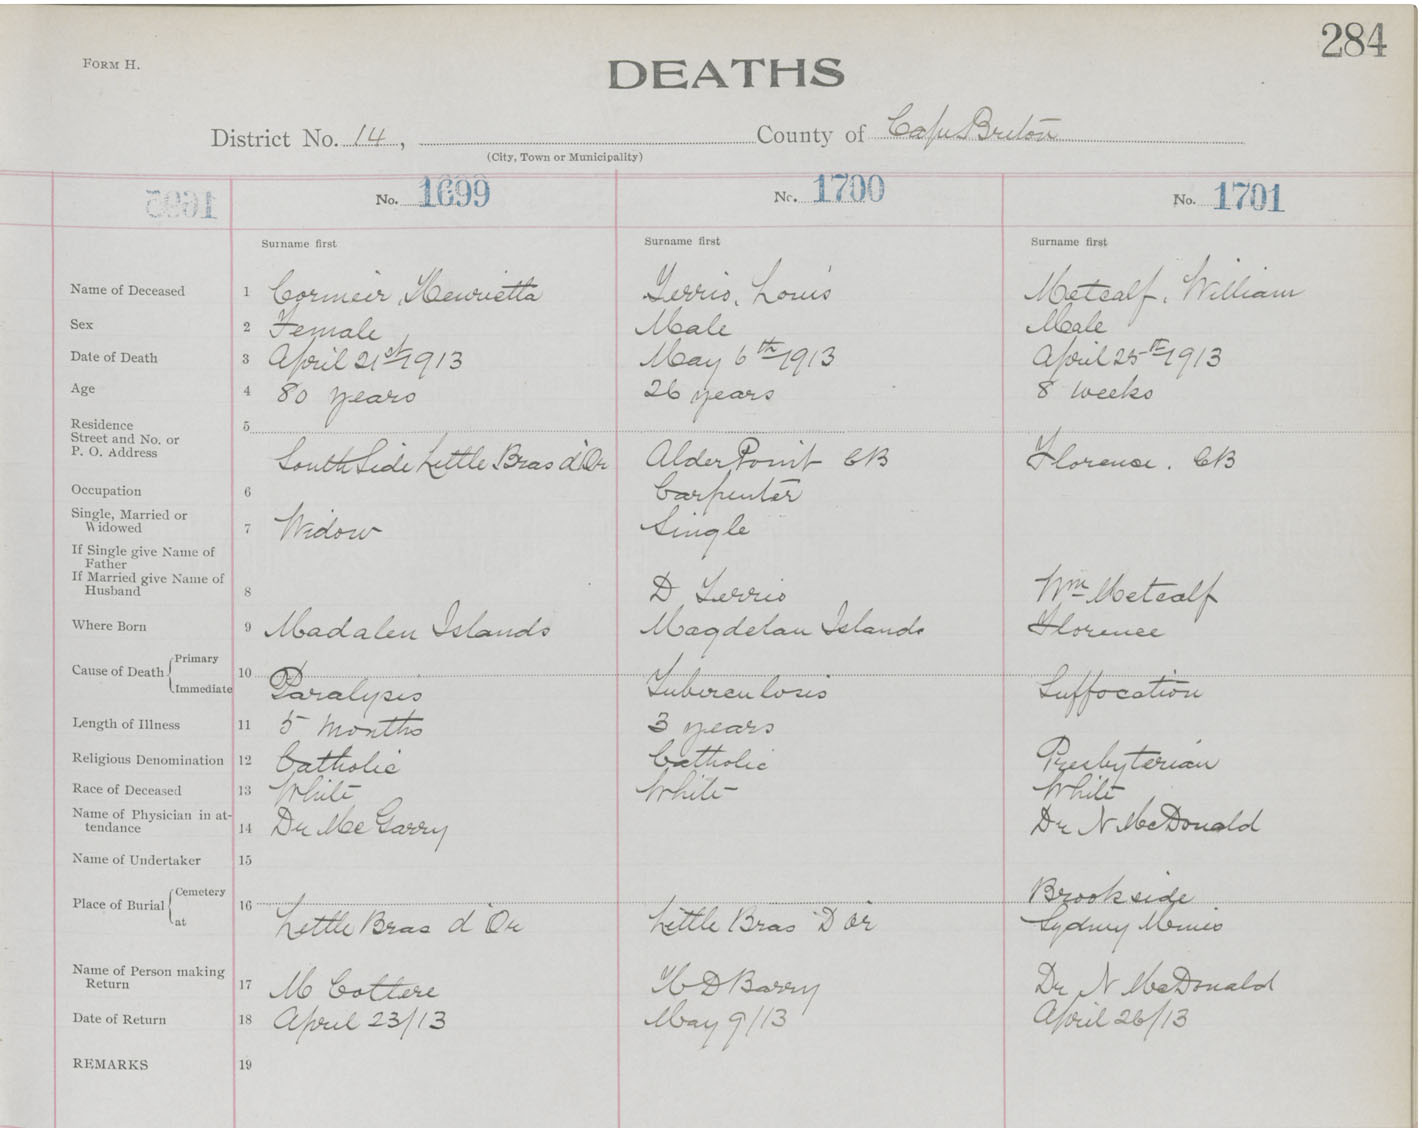 284
FORM H.
DEATHS
District No. 14, County of Cape Breton
(City, Town or Municipality)
1695 No. 1699 No. 1700 No. 1701
Surname first Surname first Surname first
Name of Deceased 1 Cormeir, Henrietta Terrio, Louis Metcalf, William
Sex 2 Female Male Male
Date of Death 3 April 21st 1913 May 6th 1913 April 25th 1913
Age 4 80 years 26 years 8 weeks
Residence 5
Street and No. or
P. O. Address South Side Little Bras d'Or Alder Point CB Florence. CB
Occupation 6 Carpenter
Single, Married or
Widowed 7 Widow Single
If Single give Name of
Father
If Married give Name of
Husband 8 D Terrio Wm Metcalf
Where Born 9 Madalen Islands Magdelan Islands Florence
Cause of Death { Primary 10
Immediate Paralysis Tuberculosis Suffocation
Length of Illness 11 5 months 3 years
Religious Denomination 12 Catholic Catholic Presbyterian
Race of Deceased 13 White White White
Name of Physician in at-
tendance 14 Dr McGarry Dr N McDonald
Name of Undertaker 15
Place of Burial { Cemetery 16 Brookside
at Little Bras d'Or Little Bras D'or Sydney Mines
Name of Person making
Return 17 M Cottere H D Barry Dr N McDonald
Date of Return 18 April 23/13 May 9/13 April 26/13
REMARKS 19